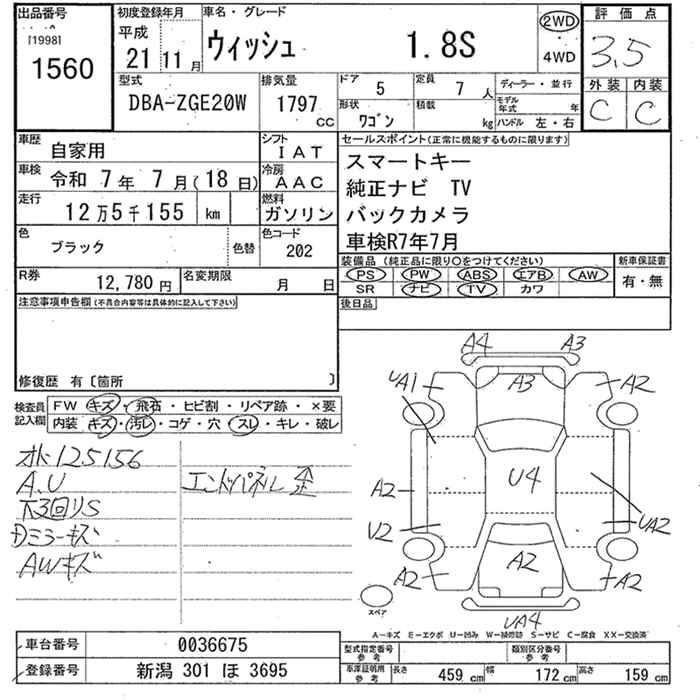 出品番号
[19983]
1560
初度登録年月
平成
21 11 月
車名・グレード
ウィッシュ 1.8S
2WD
4WD
評価点
3.5
外装 内装
C C
型式
DBA-ZGE20W
排気量
1797 CC
ドア 5
定員 7 人
形状 ワゴン
積載 kg
ディーラー・並行
モデル年式 年
ハンドル 左・右
車歴 自家用
シフト IAT
車検 令和 7年 7月(18日)
冷房 AAC
走行 12万5千155 km
燃料 ガソリン
色 ブラック
色替
色コード 202
R券 12,780 円
名変期限 月 日
セールスポイント(正常に機能するものに限ります)
スマートキー
純正ナビ TV
バックカメラ
車検R7年7月
装備品 (純正品に限り○をつけてください)
PS PW ABS エアB AW
SR ナビ TV カワ
新車保証書
有・無
後日品
注意事項申告欄 (不具合内容等は具体的に記入して下さい)
修復歴 有〔箇所 〕
検査員記入欄
FW キズ・飛石・ヒビ割・リペア跡・×要
内装 キズ・汚レ・コゲ・穴・スレ・キレ・破レ
125156
A.U
エンドパネル歪
下3回りS
ミラーキズ
AWキズ
A4 A3
UA1 A3 A2
A2 U4
U2 UA2
A2 A2 A2
UA4
スペア
A-キズ E-エクボ U-凹み W-補修跡 S-サビ C-腐食 XX-交換済
車台番号 0036675
登録番号 新潟 301 ほ 3695
型式指定番号参考
類別区分番号参考
車庫証明用参考
長さ 459 cm 幅 172 cm 高さ 159 cm